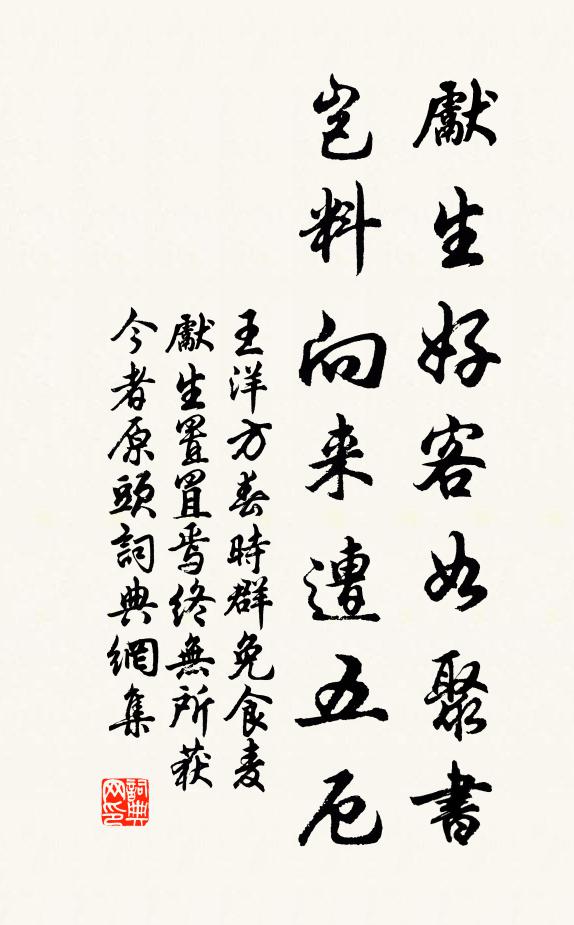 獻生好客如聚書
豈料向来遭五厄
王洋方春時群兔食麦
獻生置罝焉終無所获
今者原頭詞典網集
詞典
网印